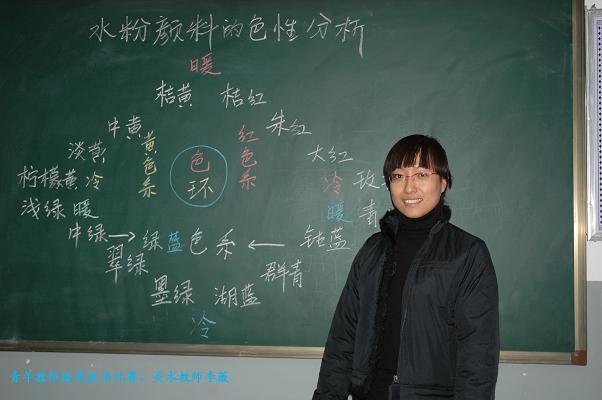 水粉颜料的色性分析
暖
桔黄 桔红
中黄 朱红
黄色系 红色系
淡黄 大红
色环
柠檬黄 冷 冷 玫
浅绿 暖 暖 青
中绿→绿蓝色系←钴蓝
翠绿 群青
墨绿 湖蓝
冷
青年教师 板书比赛：美术教师李薇